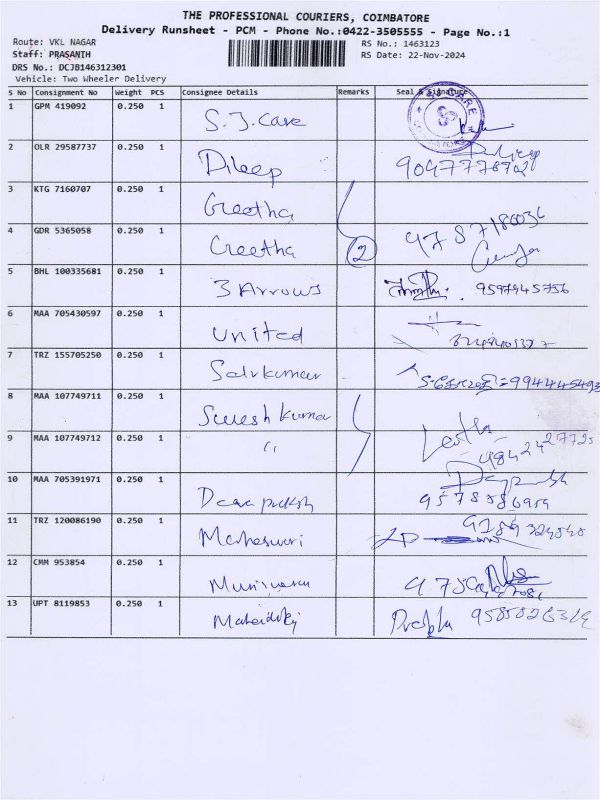 THE PROFESSIONAL COURIERS, COIMBATORE
Delivery Runsheet - PCM - Phone No.:0422-3505555 - Page No.:1
Route: VKL NAGAR
RS No.: 1463123
Staff: PRASANTH
RS Date: 22-Nov-2024
DRS No.: DCJB146312301
Vehicle: Two Wheeler Delivery
S No Consignment No Weight PCS Consignee Details Remarks Seal & Signature
1 GPM 419092 0.250 1 S.J. Care
2 OLR 29587737 0.250 1 Dileep
3 KTG 7160707 0.250 1 Geetha
4 GDR 5365058 0.250 1 Geetha 2
5 BHL 100335681 0.250 1 3 Arrows 9597945756
6 MAA 705430597 0.250 1 United
7 TRZ 155705250 0.250 1
8 MAA 107749711 0.250 1 Suresh Kumar
9 MAA 107749712 0.250 1 "
10 MAA 705391971 0.250 1
11 TRZ 120086190 0.250 1 Maheswari
12 CMM 953854 0.250 1
13 UPT 8119853 0.250 1 Prabhu